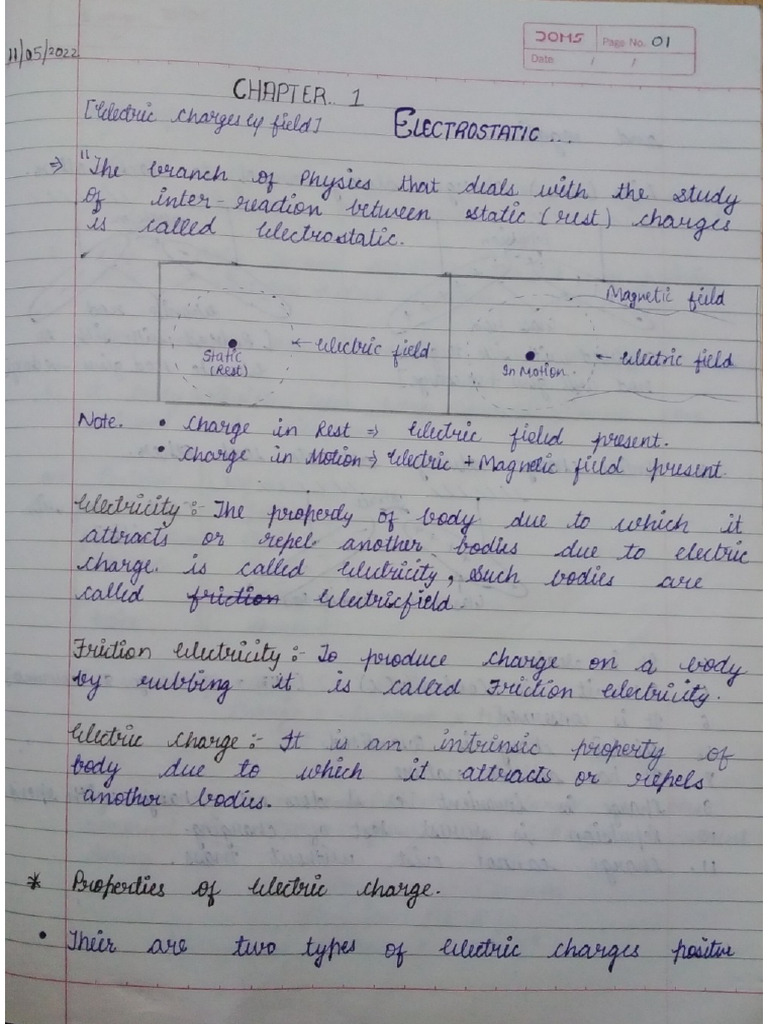 11/05/2022
DOMS Page No. 01
Date / /
CHAPTER.. 1
[Electric charges & field] ELECTROSTATIC...
⇒ "The branch of Physics that deals with the study
of inter-reaction between static (rest) charges
is called Electrostatic.
Magnetic field
Static ← Electric field In Motion ← Electric field
(Rest)
Note. • Charge in Rest ⇒ Electric field present.
• Charge in Motion ⇒ Electric + Magnetic field present
Electricity :- The property of body due to which it
attracts or repel another bodies due to electric
charge. is called Electricity, Such bodies are
called friction Electricfield.
Friction Electricity :- To produce charge on a body
by rubbing it is called Friction Electricity.
Electric charge :- It is an intrinsic property of
body due to which it attracts or repels
another bodies.
* Properties of Electric charge.
• Their are two types of Electric charges positive